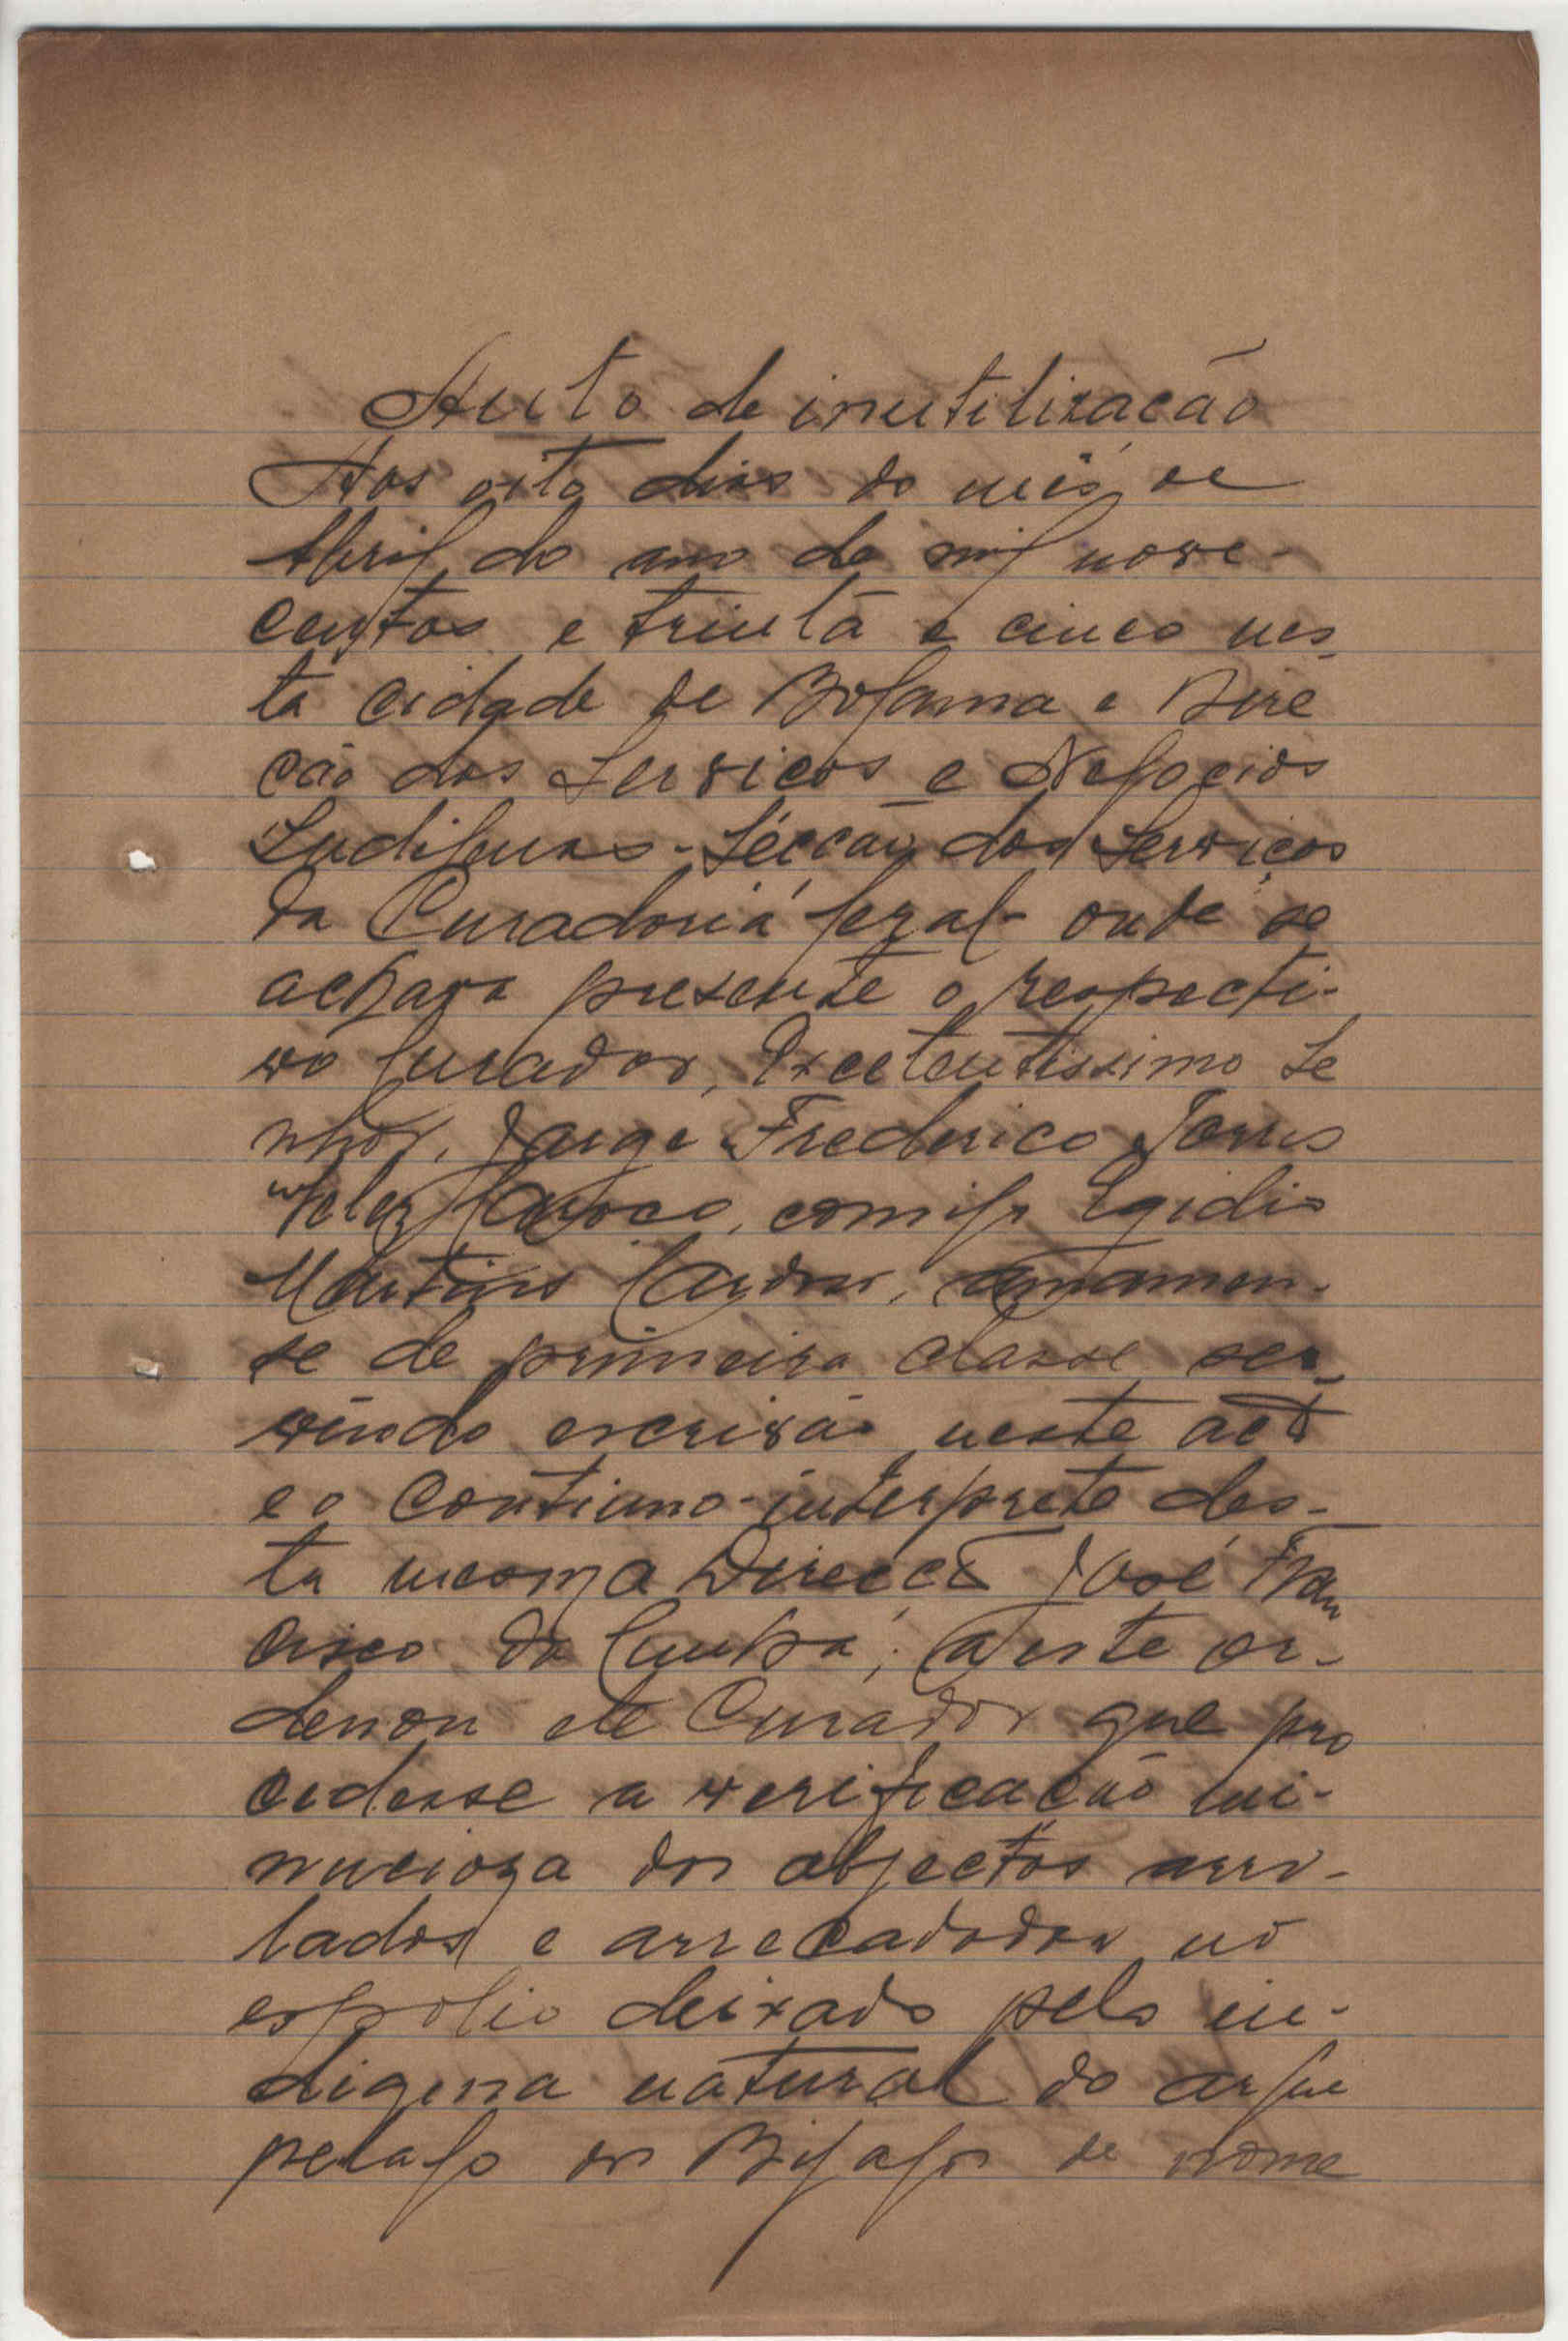 Auto de inutilização
Aos oito dias do mês de
Abril do ano de mil nove-
centos e trinta e cinco nes-
ta cidade de Bolama e Dire
cão dos Serviços e Negocios
Indigenas - Secção dos Serviços
da Curadoria Geral - onde se
achava presente o respecti-
vo Curador, Excelentissimo Se
nhor, Jorge Frederico Torres
Velez Caroço, comigo Egidio
Martins Cardoso, amanuen-
se de primeira classe ser-
vindo escrivão neste acto
e o continuo-interprete des-
ta mesma Direcção José Fran
cisco da Cunha; a este or-
denou ele Curador que pro
cedesse a verificação mi-
nucioza dos objectos arro-
lados e arrecadados no
espolio deixado pelo in-
digena natural do arqui
pelago dos Bijagos de nome